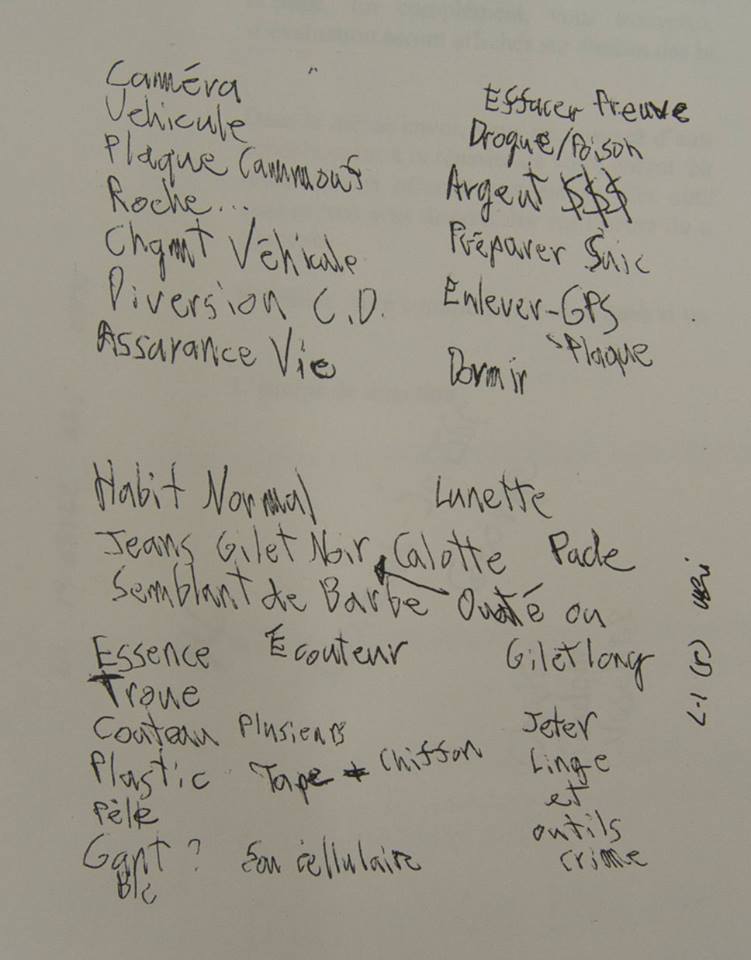 Caméra
Vehicule
Plaque Cammouf
Roche...
Chgmt Véhicule
Diversion C.D.
Assarance Vie
Effacer Preuve
Drogue/Poison
Argent $$$
Préparer Suic
Enlever-GPS
Plaque
Dormir
Habit Normal Lunette
Jeans Gilet Noir Calotte Pade
Semblant de Barbe Ouaté ou
Essence Écouteur Gilet long
Troue
Couteau Plusieurs
Plastic Tape Chiffon
Pèle
Gant ? Son cellulaire
Blc
Jeter
Linge
et
outils
crime
L-1 (r)